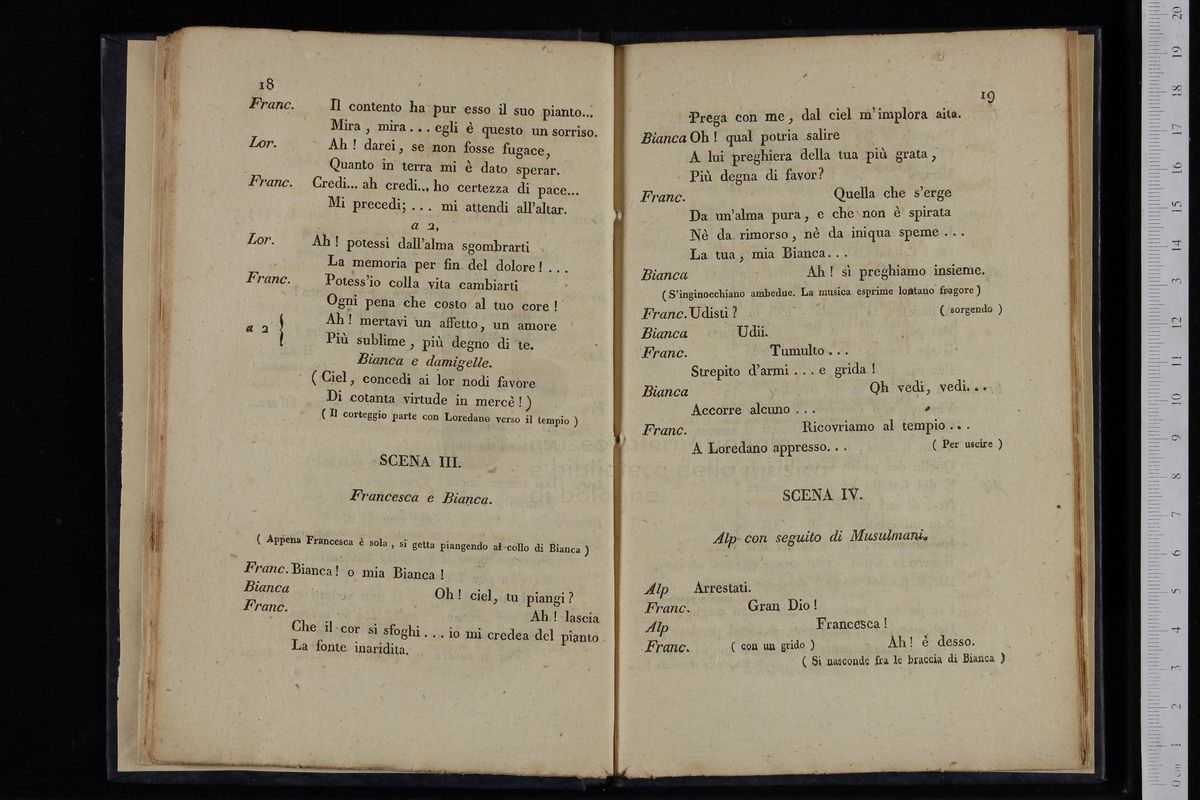 18
Franc. Il contento ha pur esso il suo pianto...
Mira , mira . . . egli è questo un sorriso.
Lor. Ah ! darei, se non fosse fugace,
Quanto in terra mi è dato sperar.
Franc. Credi... ah credi... ho certezza di pace...
Mi precedi; . . . mi attendi all'altar.
a 2,
Lor. Ah ! potessi dall'alma sgombrarti
La memoria per fin del dolore ! . . .
Franc. Potess'io colla vita cambiarti
Ogni pena che costo al tuo core !
a 2 { Ah ! mertavi un affetto, un amore
Più sublime , più degno di te.
Bianca e damigelle.
( Ciel, concedi ai lor nodi favore
Di cotanta virtude in mercè ! )
( Il corteggio parte con Loredano verso il tempio )
SCENA III.
Francesca e Bianca.
( Appena Francesca è sola , si getta piangendo al collo di Bianca )
Franc. Bianca ! o mia Bianca !
Bianca Oh ! ciel, tu piangi ?
Franc. Ah ! lascia
Che il cor si sfoghi . . . io mi credea del pianto
La fonte inaridita.
19
Prega con me, dal ciel m'implora aita.
Bianca Oh ! qual potria salire
A lui preghiera della tua più grata ,
Più degna di favor ?
Franc. Quella che s'erge
Da un'alma pura, e che non è spirata
Nè da rimorso , nè da iniqua speme . . .
La tua , mia Bianca . . .
Bianca Ah ! sì preghiamo insieme.
( S'inginocchiano ambedue. La musica esprime lontano fragore )
Franc. Udisti ? ( sorgendo )
Bianca Udii.
Franc. Tumulto . . .
Strepito d'armi . . . e grida !
Bianca Oh vedi, vedi. . .
Accorre alcuno . . .
Franc. Ricovriamo al tempio . . .
A Loredano appresso. . . ( Per uscire )
museo internazionale
biblioteca della musica
di bologna
SCENA IV.
Alp con seguito di Musulmani.
Alp Arrestati.
Franc. Gran Dio !
Alp Francesca !
Franc. ( con un grido ) Ah ! è desso.
( Si nasconde fra le braccia di Bianca )
0 cm 1 2 3 4 5 6 7 8 9 10 11 12 13 14 15 16 17 18 19 20